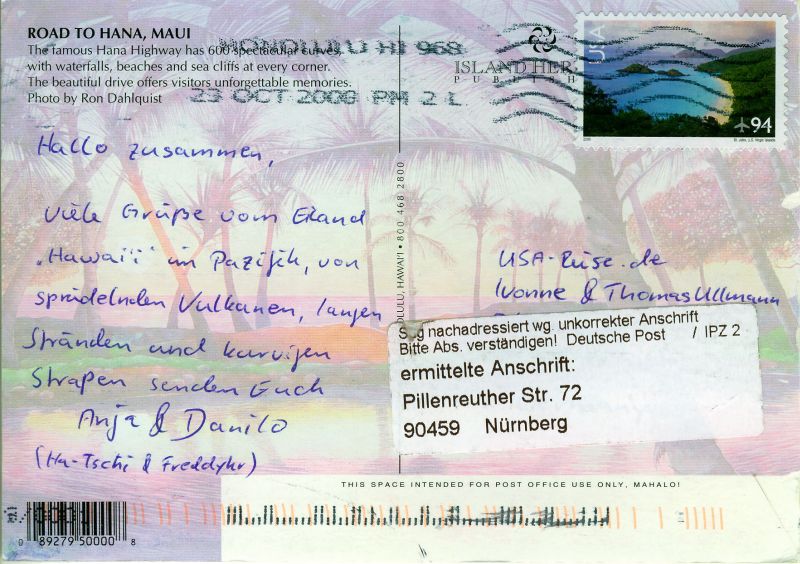 ROAD TO HANA, MAUI
The famous Hana Highway has 600 spectacular curves,
with waterfalls, beaches and sea cliffs at every corner.
The beautiful drive offers visitors unforgettable memories.
Photo by Ron Dahlquist
HONOLULU HI 968
23 OCT 2008 PM 2 L
ISLAND HER
PUB
USA
94
St. John, U.S. Virgin Islands
Hallo zusammen,
viele Grüße vom Eiland
„Hawai'i" im Pazifik, von
sprudelnden Vulkanen, langen
Stränden und kurvigen
Straßen senden Euch
Anja & Danilo
(Ha-Tschi & Freddyhr)
HONOLULU, HAWAI'I • 800 468 2800
USA-Reise.de
Ivonne & Thomas Ullmann
nachadressiert wg. unkorrekter Anschrift
Bitte Abs. verständigen! Deutsche Post / IPZ 2
ermittelte Anschrift:
Pillenreuther Str. 72
90459 Nürnberg
THIS SPACE INTENDED FOR POST OFFICE USE ONLY, MAHALO!
0 89279 50000 8